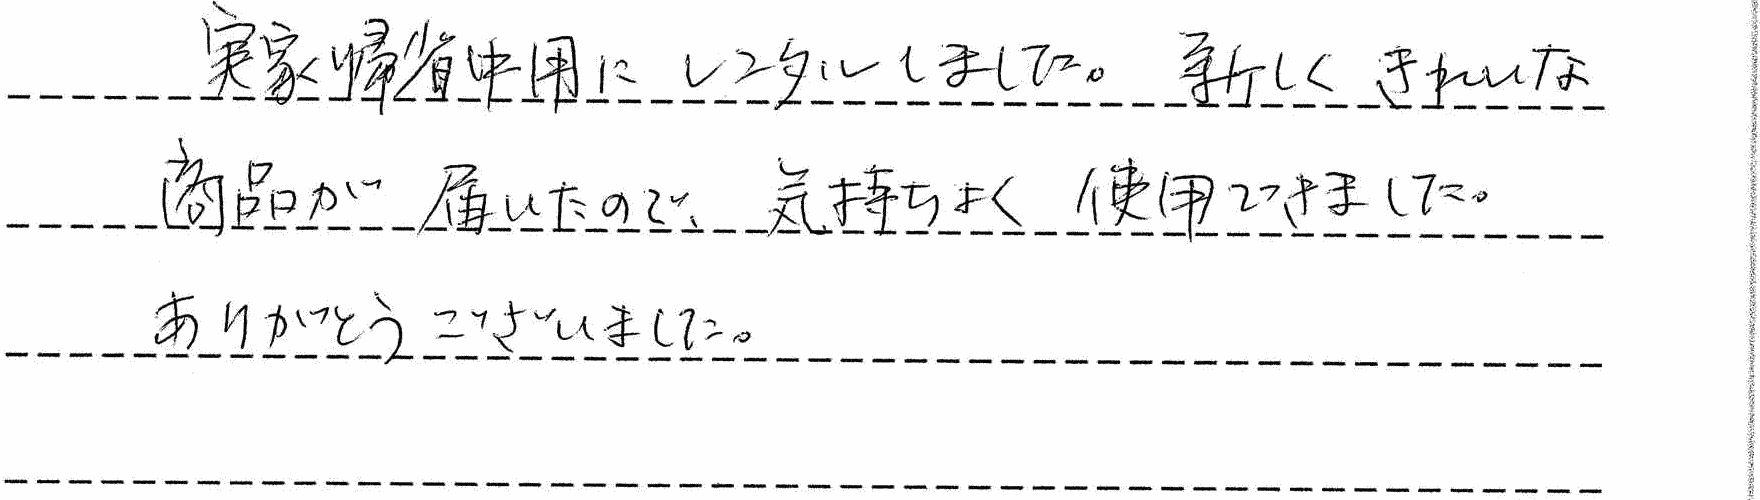 実家帰省中用にレンタルしました。新しくきれいな
商品が届いたので、気持ちよく使用できました。
ありがとうございました。